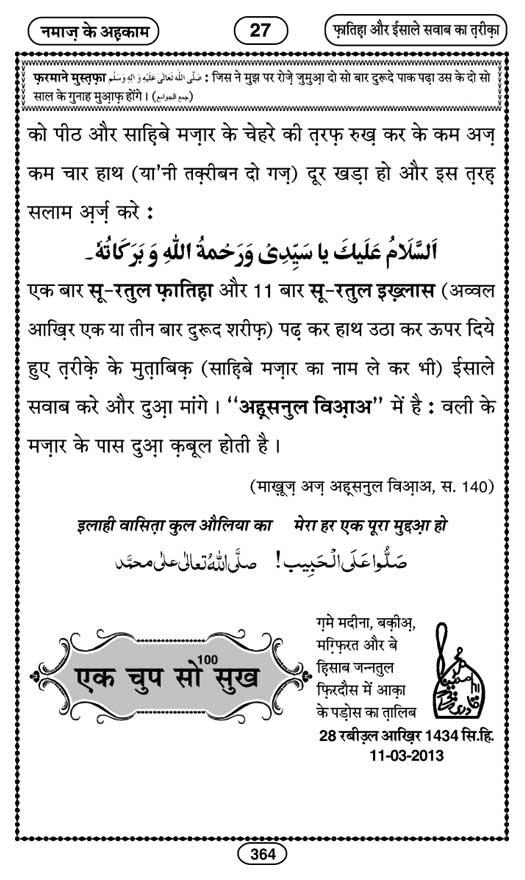 नमाज़ के अह़काम
27
फ़ातिह़ा और ईसाले सवाब का त़रीक़ा
फ़रमाने मुस्त़फ़ा صَلَّى اللهُ تَعَالٰى عَلَيْهِ وَاٰلِهٖ وَسَلَّم : जिस ने मुझ पर रोज़े जुमुआ़ दो सो बार दुरूदे पाक पढ़ा उस के दो सो
साल के गुनाह मुआ़फ़ होंगे। (جمع الجوامع)
को पीठ और साह़िबे मज़ार के चेहरे की त़रफ़ रुख़ कर के कम अज़
कम चार हाथ (या'नी तक़्रीबन दो गज़) दूर खड़ा हो और इस त़रह़
सलाम अ़र्ज़ करे :
اَلسَّلَامُ عَلَيكَ يا سَيِّدِىْ وَرَحْمةُ اللهِ وَ بَرَكَاتُهٗ۔
एक बार सू-रतुल फ़ातिह़ा और 11 बार सू-रतुल इख़्लास (अव्वल
आख़िर एक या तीन बार दुरूद शरीफ़) पढ़ कर हाथ उठा कर ऊपर दिये
हुए त़रीक़े के मुत़ाबिक़ (साह़िबे मज़ार का नाम ले कर भी) ईसाले
सवाब करे और दुआ़ मांगे। ‘‘अह़्सनुल विआ़अ’’ में है : वली के
मज़ार के पास दुआ़ क़बूल होती है।
(माख़ूज़ अज़ अह़्सनुल विआ़अ, स. 140)
इलाही वासित़ा कुल औलिया का मेरा हर एक पूरा मुद्दआ़ हो
صَلُّوا عَلَى الْحَبِيب! صلَّى اللهُ تعالٰى على محمَّد
एक चुप सो 100 सुख
ग़मे मदीना, बक़ीअ़,
मग़्फ़िरत और बे
हिसाब जन्नतुल
फ़िरदौस में आक़ा
के पड़ोस का त़ालिब
28 रबीउ़ल आख़िर 1434 सि.हि.
11-03-2013
364